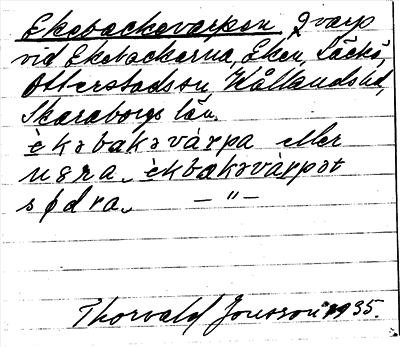 Ekebackevarpen, 2 varp
vid Ekebackarna, Eken, Täcks,
Otterstadsn, Kållandshd,
Skaraborgs län.
èkəbakəvárpa eller
nɵra, èkbakəvàrpət
sødra, – " –
Thorvald Jonsson 1935.